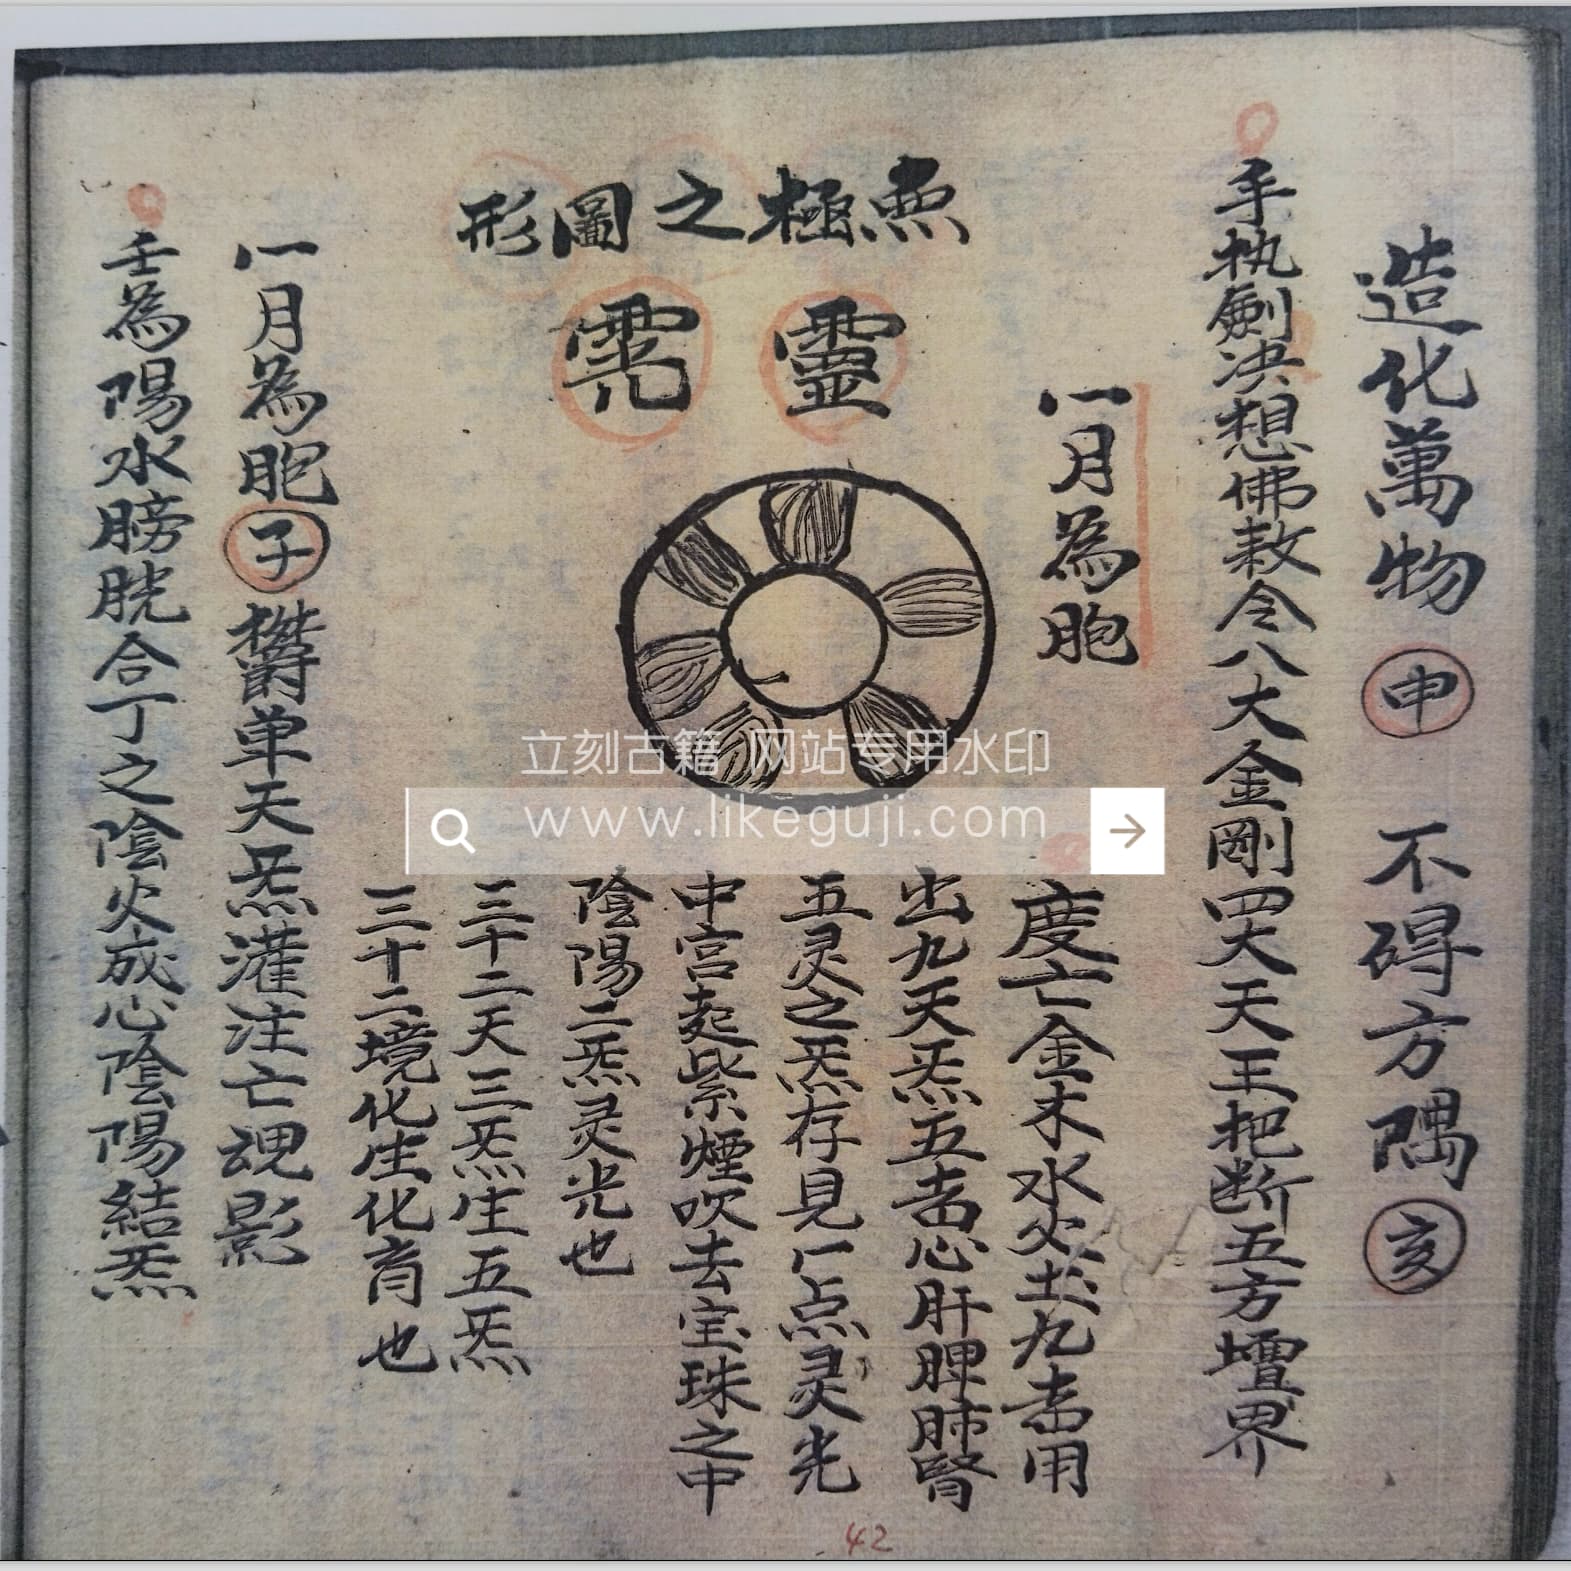 造化萬物 申 不碍方隅 亥
手执劍决想佛敕令八大金剛四大天王把断五方壇界
一月為胞
無極之圖形
靈
度亡金木水火土九炁用
出九天炁五炁心肝脾肺腎
五灵之炁存見一点灵光
中宫起紫煙吹去宝珠之中
陰陽二炁灵光也
三十二天三炁生五炁
三十二境化生化育也
一月為胞 子 欝单天炁灌注亡魂影
壬為陽水膀胱合丁之陰火成心陰陽結炁
立刻古籍 网站专用水印
www.likeguji.com
42